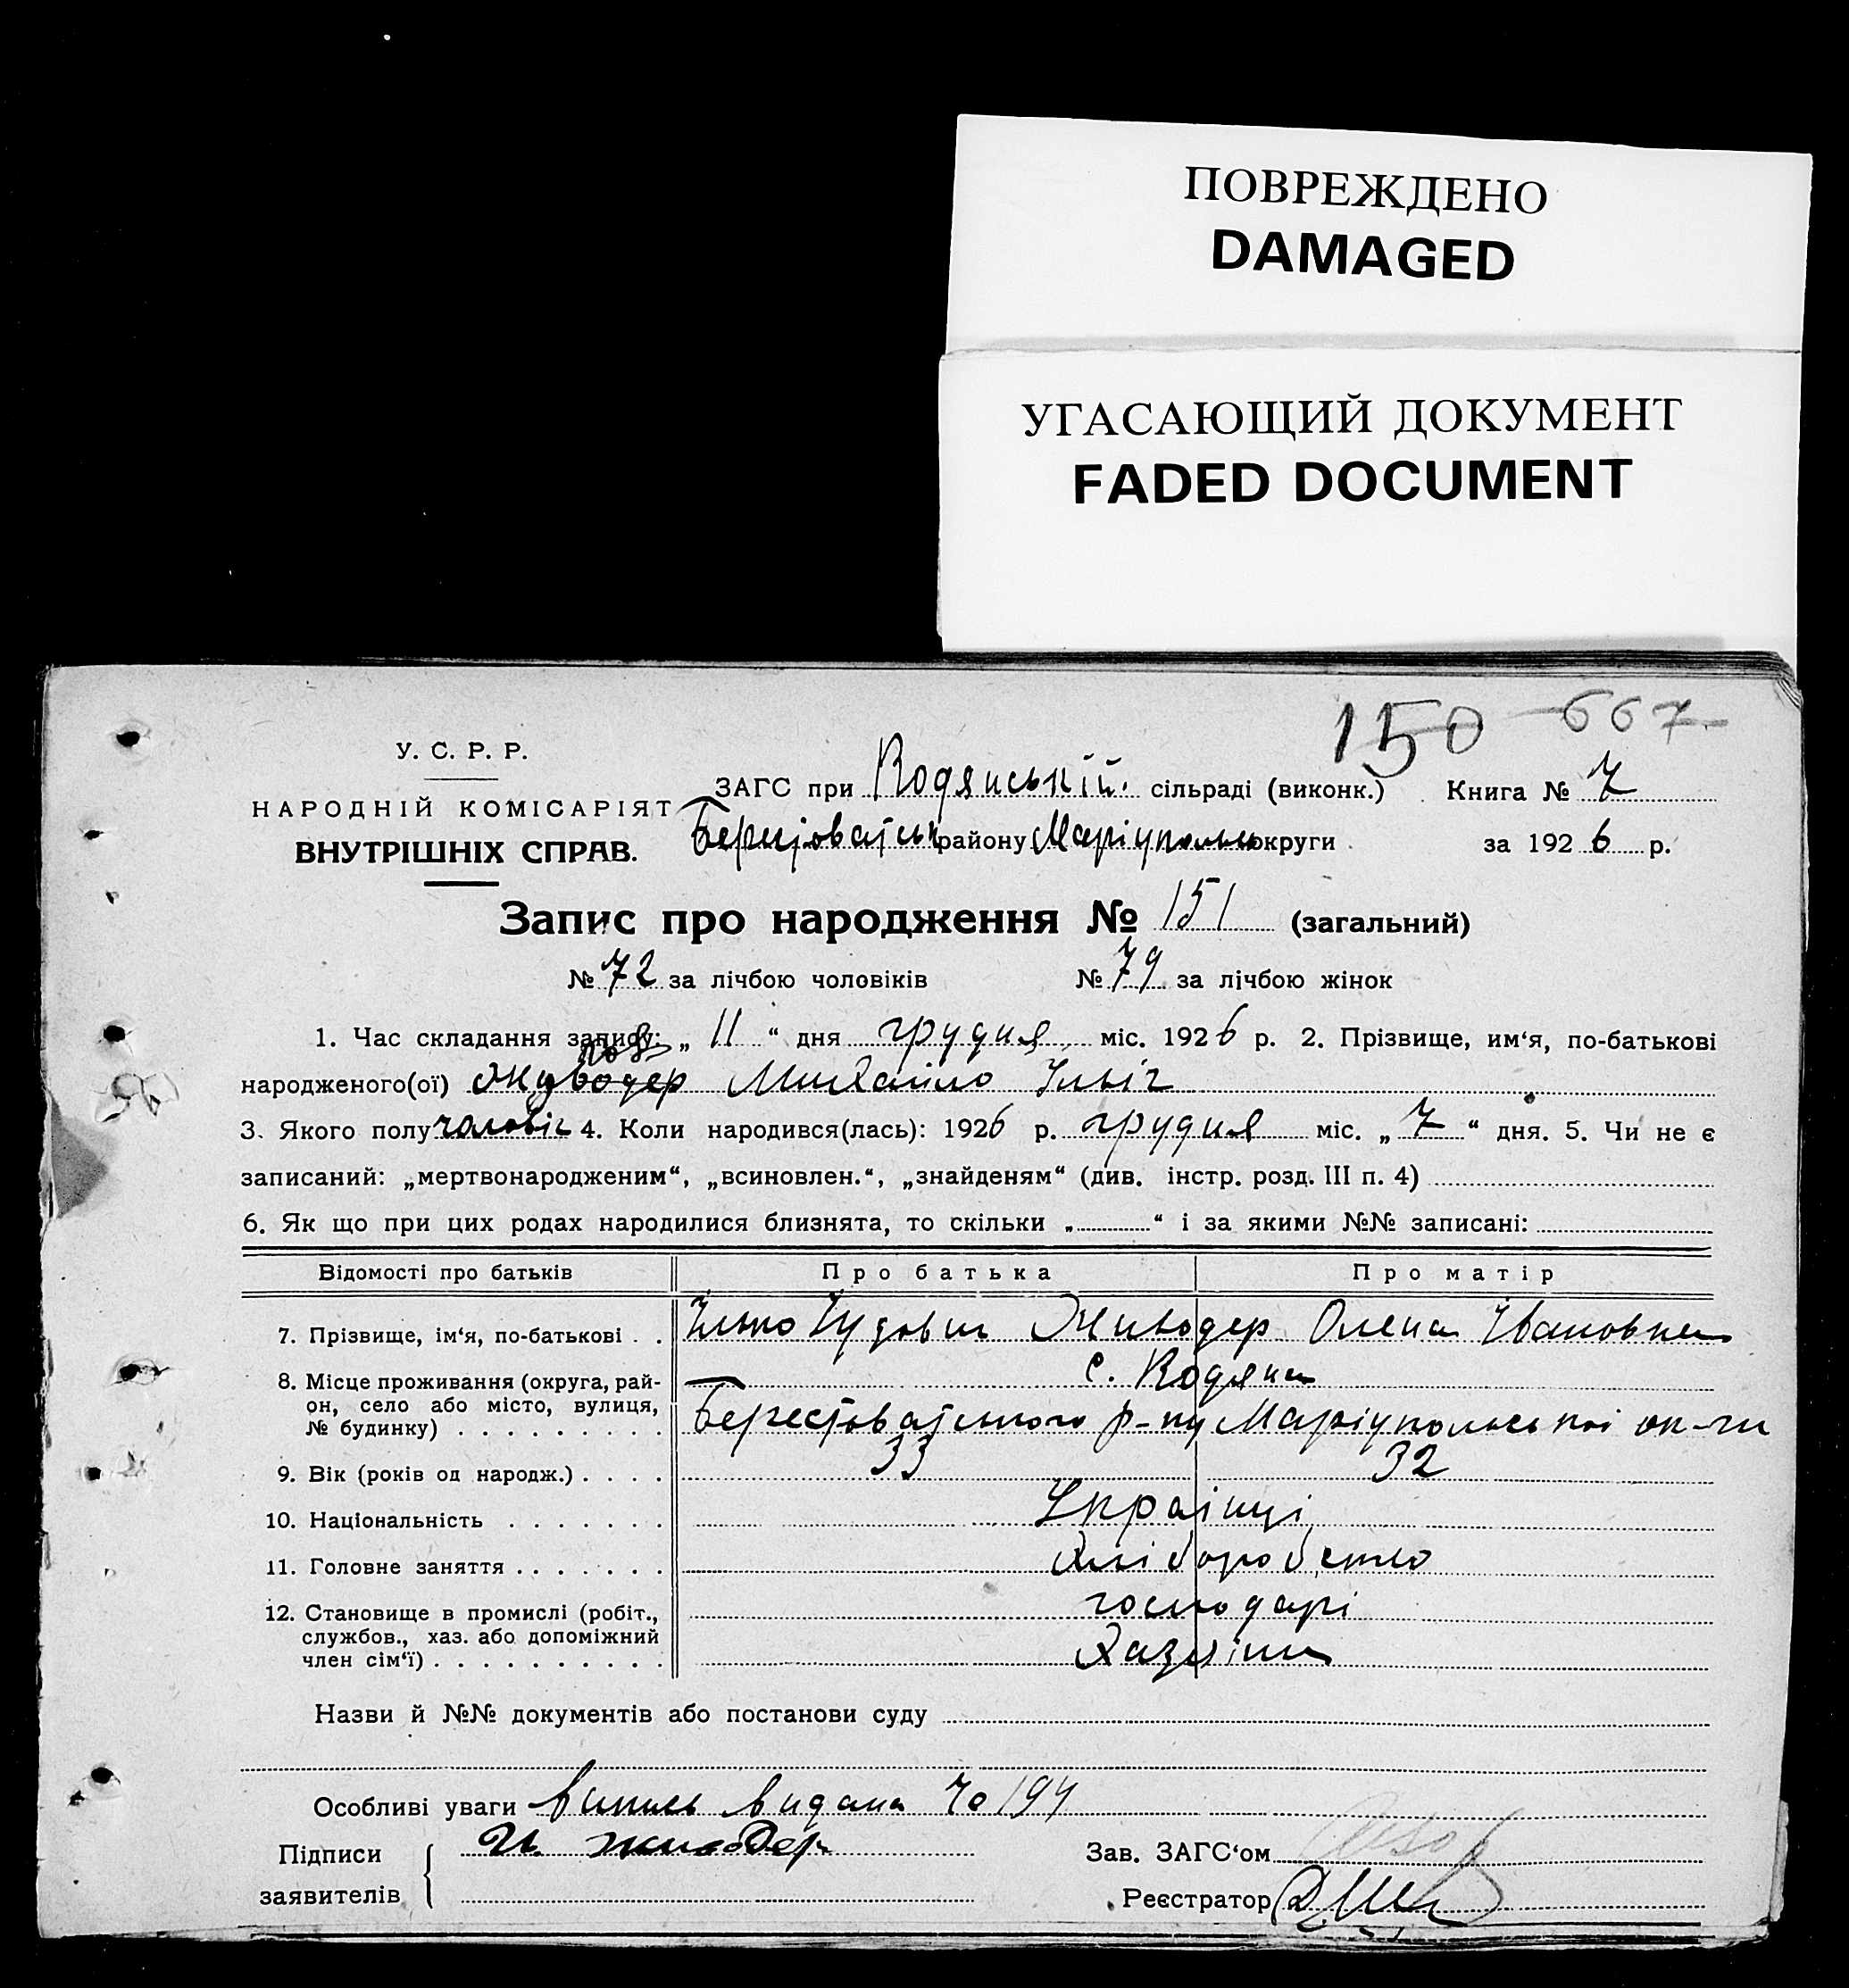 ПОВРЕЖДЕНО
DAMAGED
УГАСАЮЩИЙ ДОКУМЕНТ
FADED DOCUMENT
150 667
У. С. Р. Р.
НАРОДНІЙ КОМІСАРІЯТ
ВНУТРІШНІХ СПРАВ.
ЗАГС при Водянській сільраді (виконк.) Книга № 7
району Маріупольськ округи за 1926 р.
Запис про народження № 151 (загальний)
№ 72 за лічбою чоловіків № 79 за лічбою жінок
1. Час складання запису: „ 11 “ дня грудня міс. 1926 р. 2. Прізвище, им‘я, по-батькові
народженого(ої) Михайло Ільіч
3. Якого полу чоловіч 4. Коли народився(лась): 1926 р. грудня міс. „ 7 “ дня. 5. Чи не є
записаний: „мертвонародженим“, „всиновлен.“, „знайденям“ (див. інстр. розд. III п. 4)
6. Як що при цих родах народилися близнята, то скільки „ “ і за якими №№ записані:
Відомості про батьків Про батька Про матір
7. Прізвище, ім‘я, по-батькові Живодер Олена Івановна
8. Місце проживання (округа, рай- с. Водяна
он, село або місто, вулиця, Берестоватського р-ну Маріупольської ок-ги
№ будинку)
9. Вік (років од народж.) 33 32
10. Національність Українці
11. Головне заняття Хліборобство
12. Становище в промислі (робіт., господарі
службов., хаз. або допоміжний
член сім‘ї) Хазяіни
Назви й №№ документів або постанови суду
Особливі уваги випись видана № 194
Підписи И. Живодер Зав. ЗАГС‘ом
заявителів Реєстратор